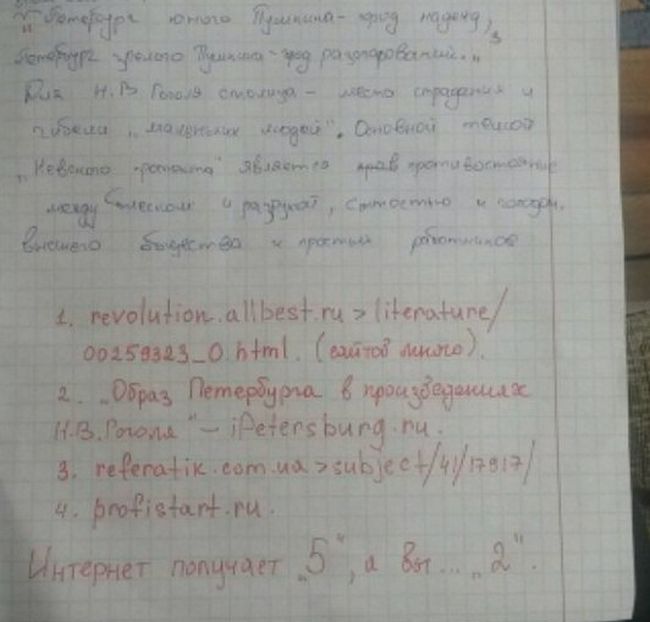 "Петербург юного Пушкина - город надежд,
Петербург зрелого Пушкина - город разочарований."
Для Н.В Гоголя столица - место страдания и
гибели „маленьких людей". Основной темой
„Невского проспекта" является нрав противостояние
между блеском и разрухой, сытостью и голодом,
высшего общества и простых работников
1. revolution.allbest.ru > literature/
00259323_0.html. (сайтов много).
2. „Образ Петербурга в произведениях
Н.В.Гоголя" - iPetersburg.ru.
3. referatik.com.ua > subject/41/17917/
4. profistart.ru.
Интернет получает „5", а вы... „2".